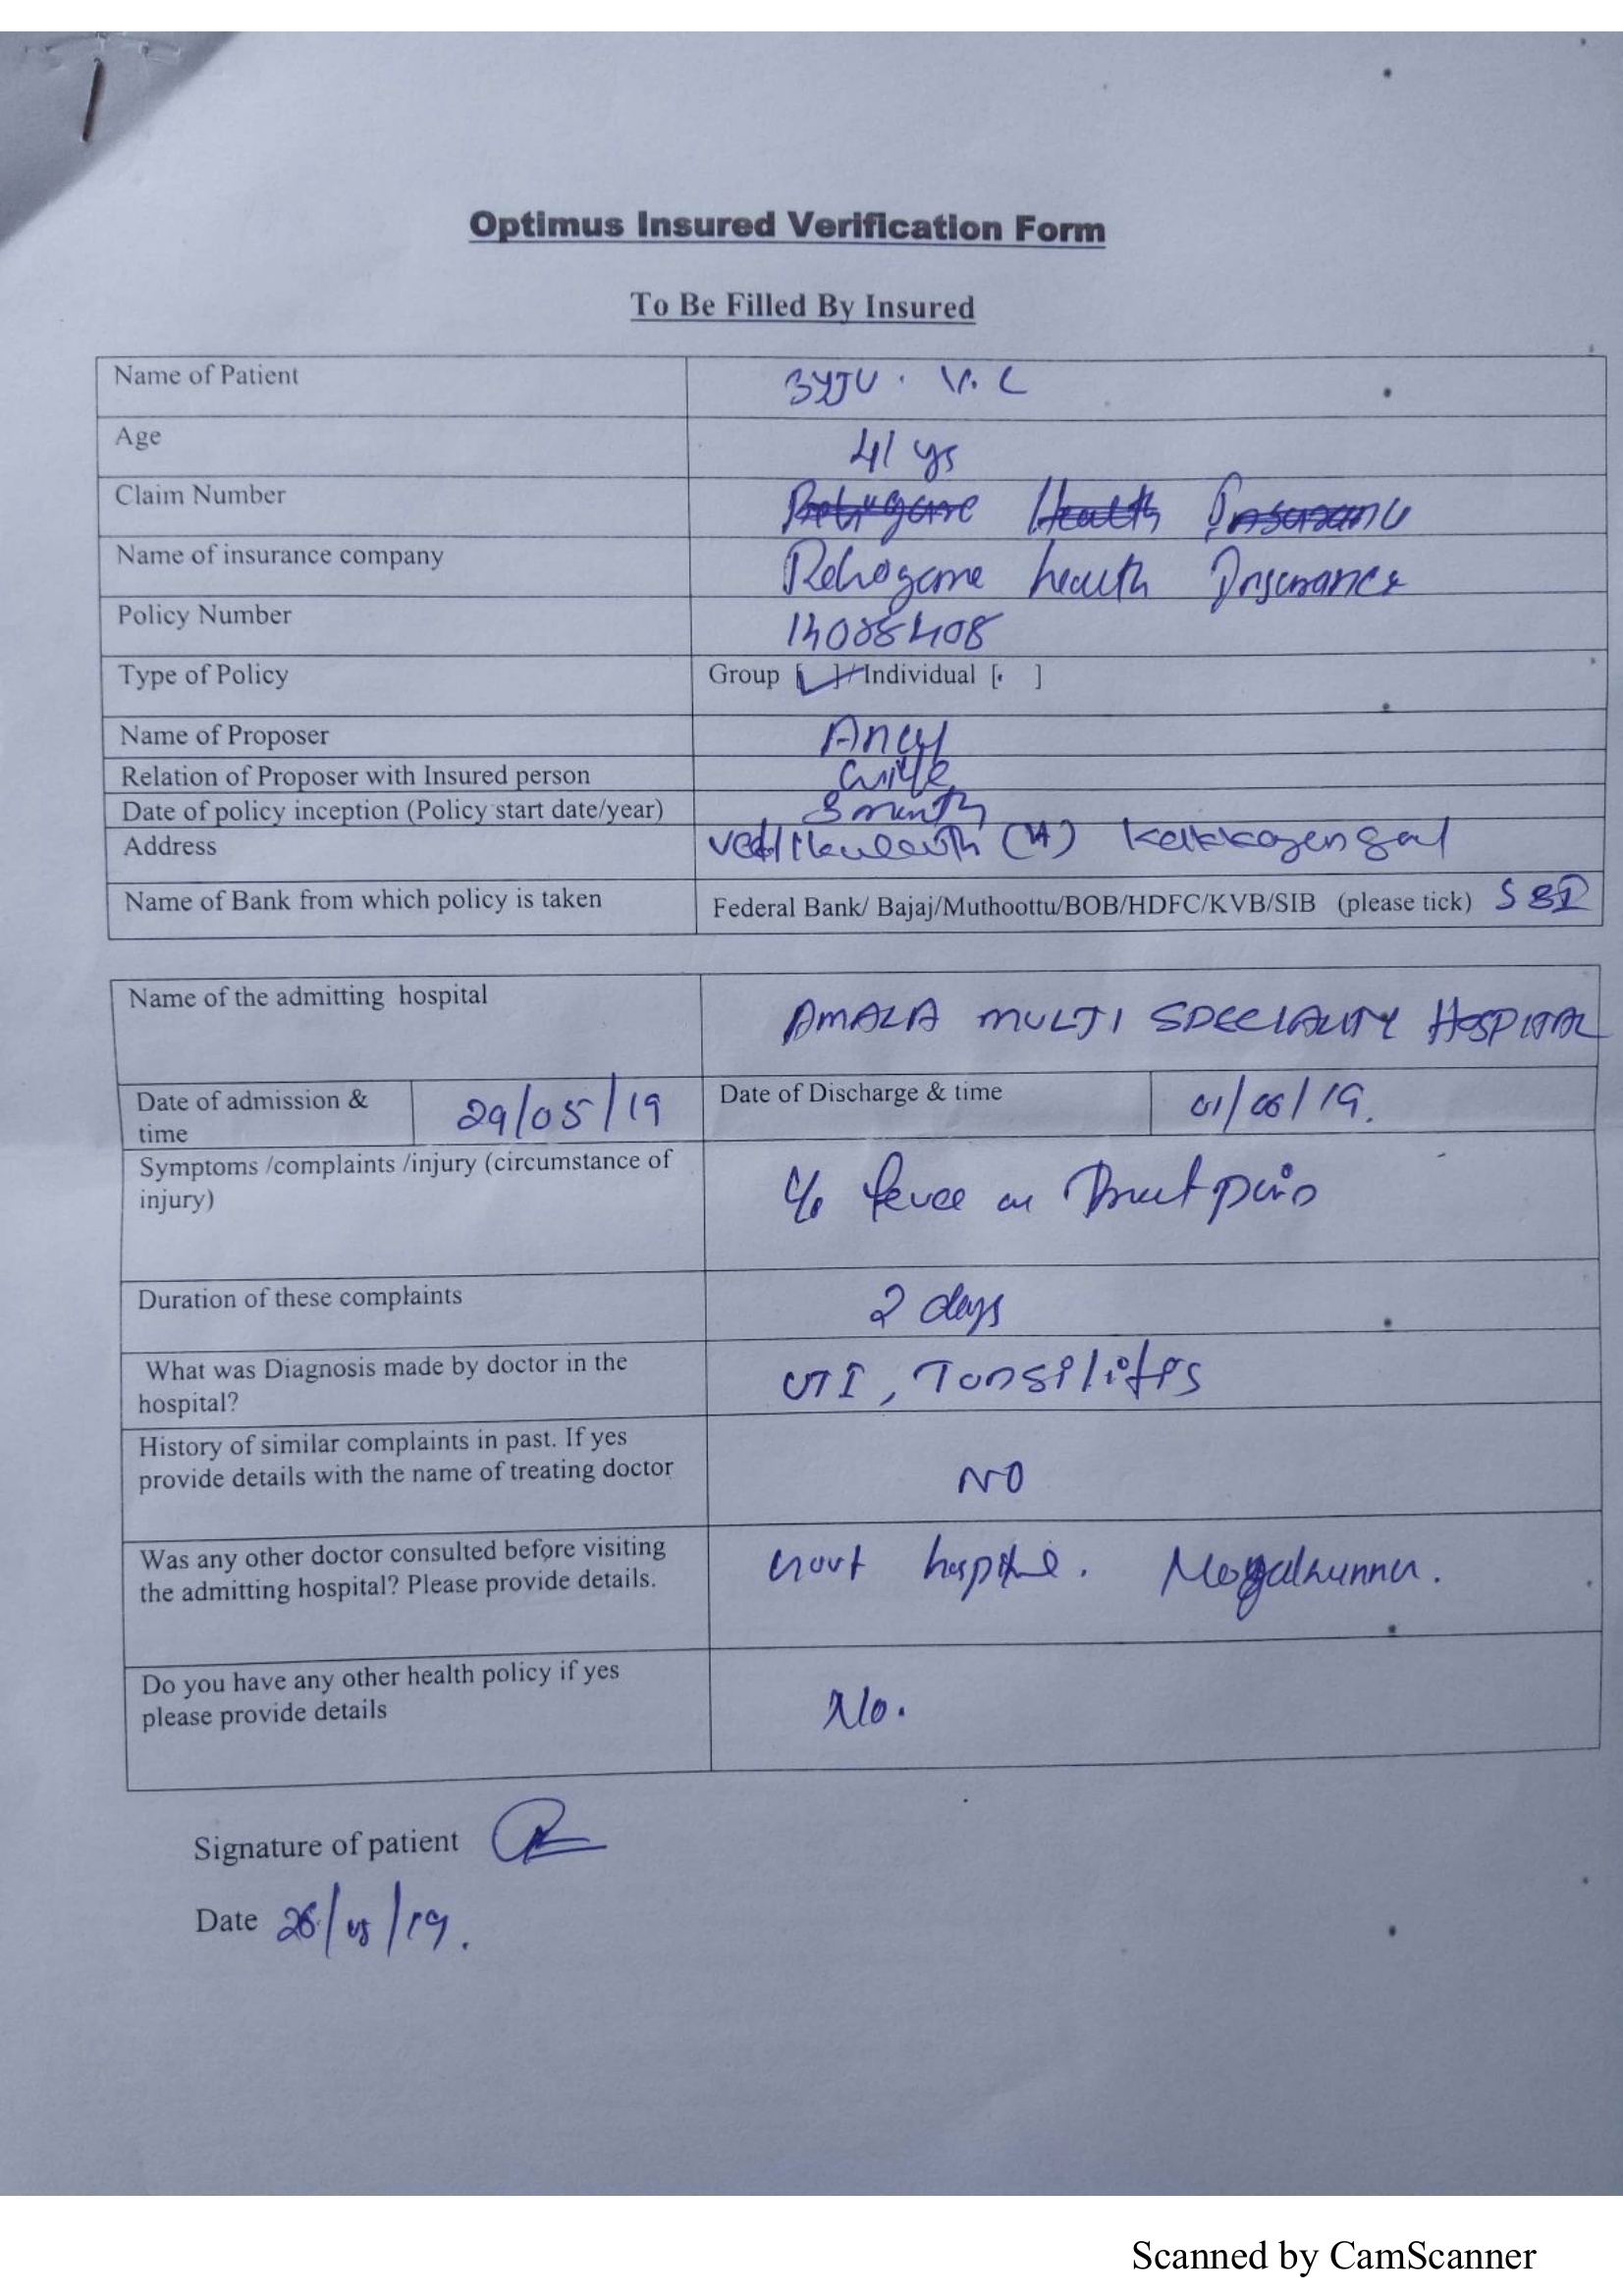 Optimus Insured Verification Form
To Be Filled By Insured
Name of Patient BYJU. V. C
Age 41 ys
Claim Number
Name of insurance company health Insurance
Policy Number 14008408
Type of Policy Group [ ] / Individual [ ]
Name of Proposer Ancy
Relation of Proposer with Insured person wife
Date of policy inception (Policy start date/year) 3 month
Address (H)
Name of Bank from which policy is taken Federal Bank/ Bajaj/Muthoottu/BOB/HDFC/KVB/SIB (please tick) SBI
Name of the admitting hospital AMALA MULTI SPECIALITY HOSPITAL
Date of admission & 29/05/19 Date of Discharge & time 01/06/19.
time
Symptoms /complaints /injury (circumstance of
injury) c/o pain
Duration of these complaints 2 days
What was Diagnosis made by doctor in the
hospital? UTI, Tonsilitis
History of similar complaints in past. If yes
provide details with the name of treating doctor NO
Was any other doctor consulted before visiting
the admitting hospital? Please provide details. Govt
Do you have any other health policy if yes
please provide details No.
Signature of patient
Date
Scanned by CamScanner